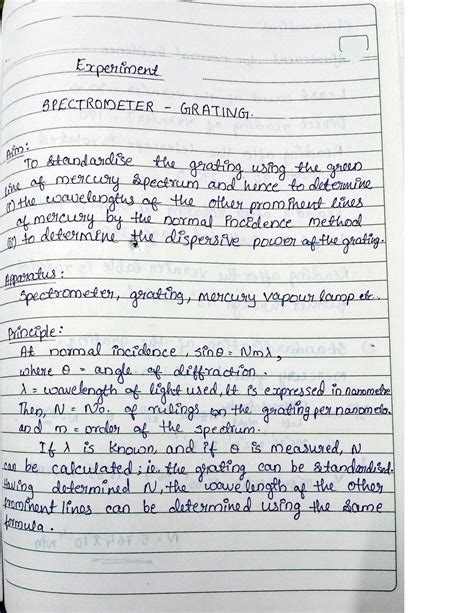 Experiment
SPECTROMETER - GRATING.
Aim:
To standardise the grating using the green
line of mercury spectrum and hence to determine
(i) the wavelengths of the other prominent lines
of mercury by the normal incidence method
(ii) to determine the dispersive power of the grating.
Apparatus:
Spectrometer, grating, mercury vapour lamp etc.
Principle:
At normal incidence, sinθ = Nmλ,
where θ = angle of diffraction.
λ = wavelength of light used, It is expressed in nanometre
Then, N = No. of rulings on the grating per nanometer
and m = order of the spectrum.
If λ is known, and if θ is measured, N
can be calculated; ie, the grating can be standardised.
Having determined N, the wave length of the other
prominent lines can be determined using the same
formula.